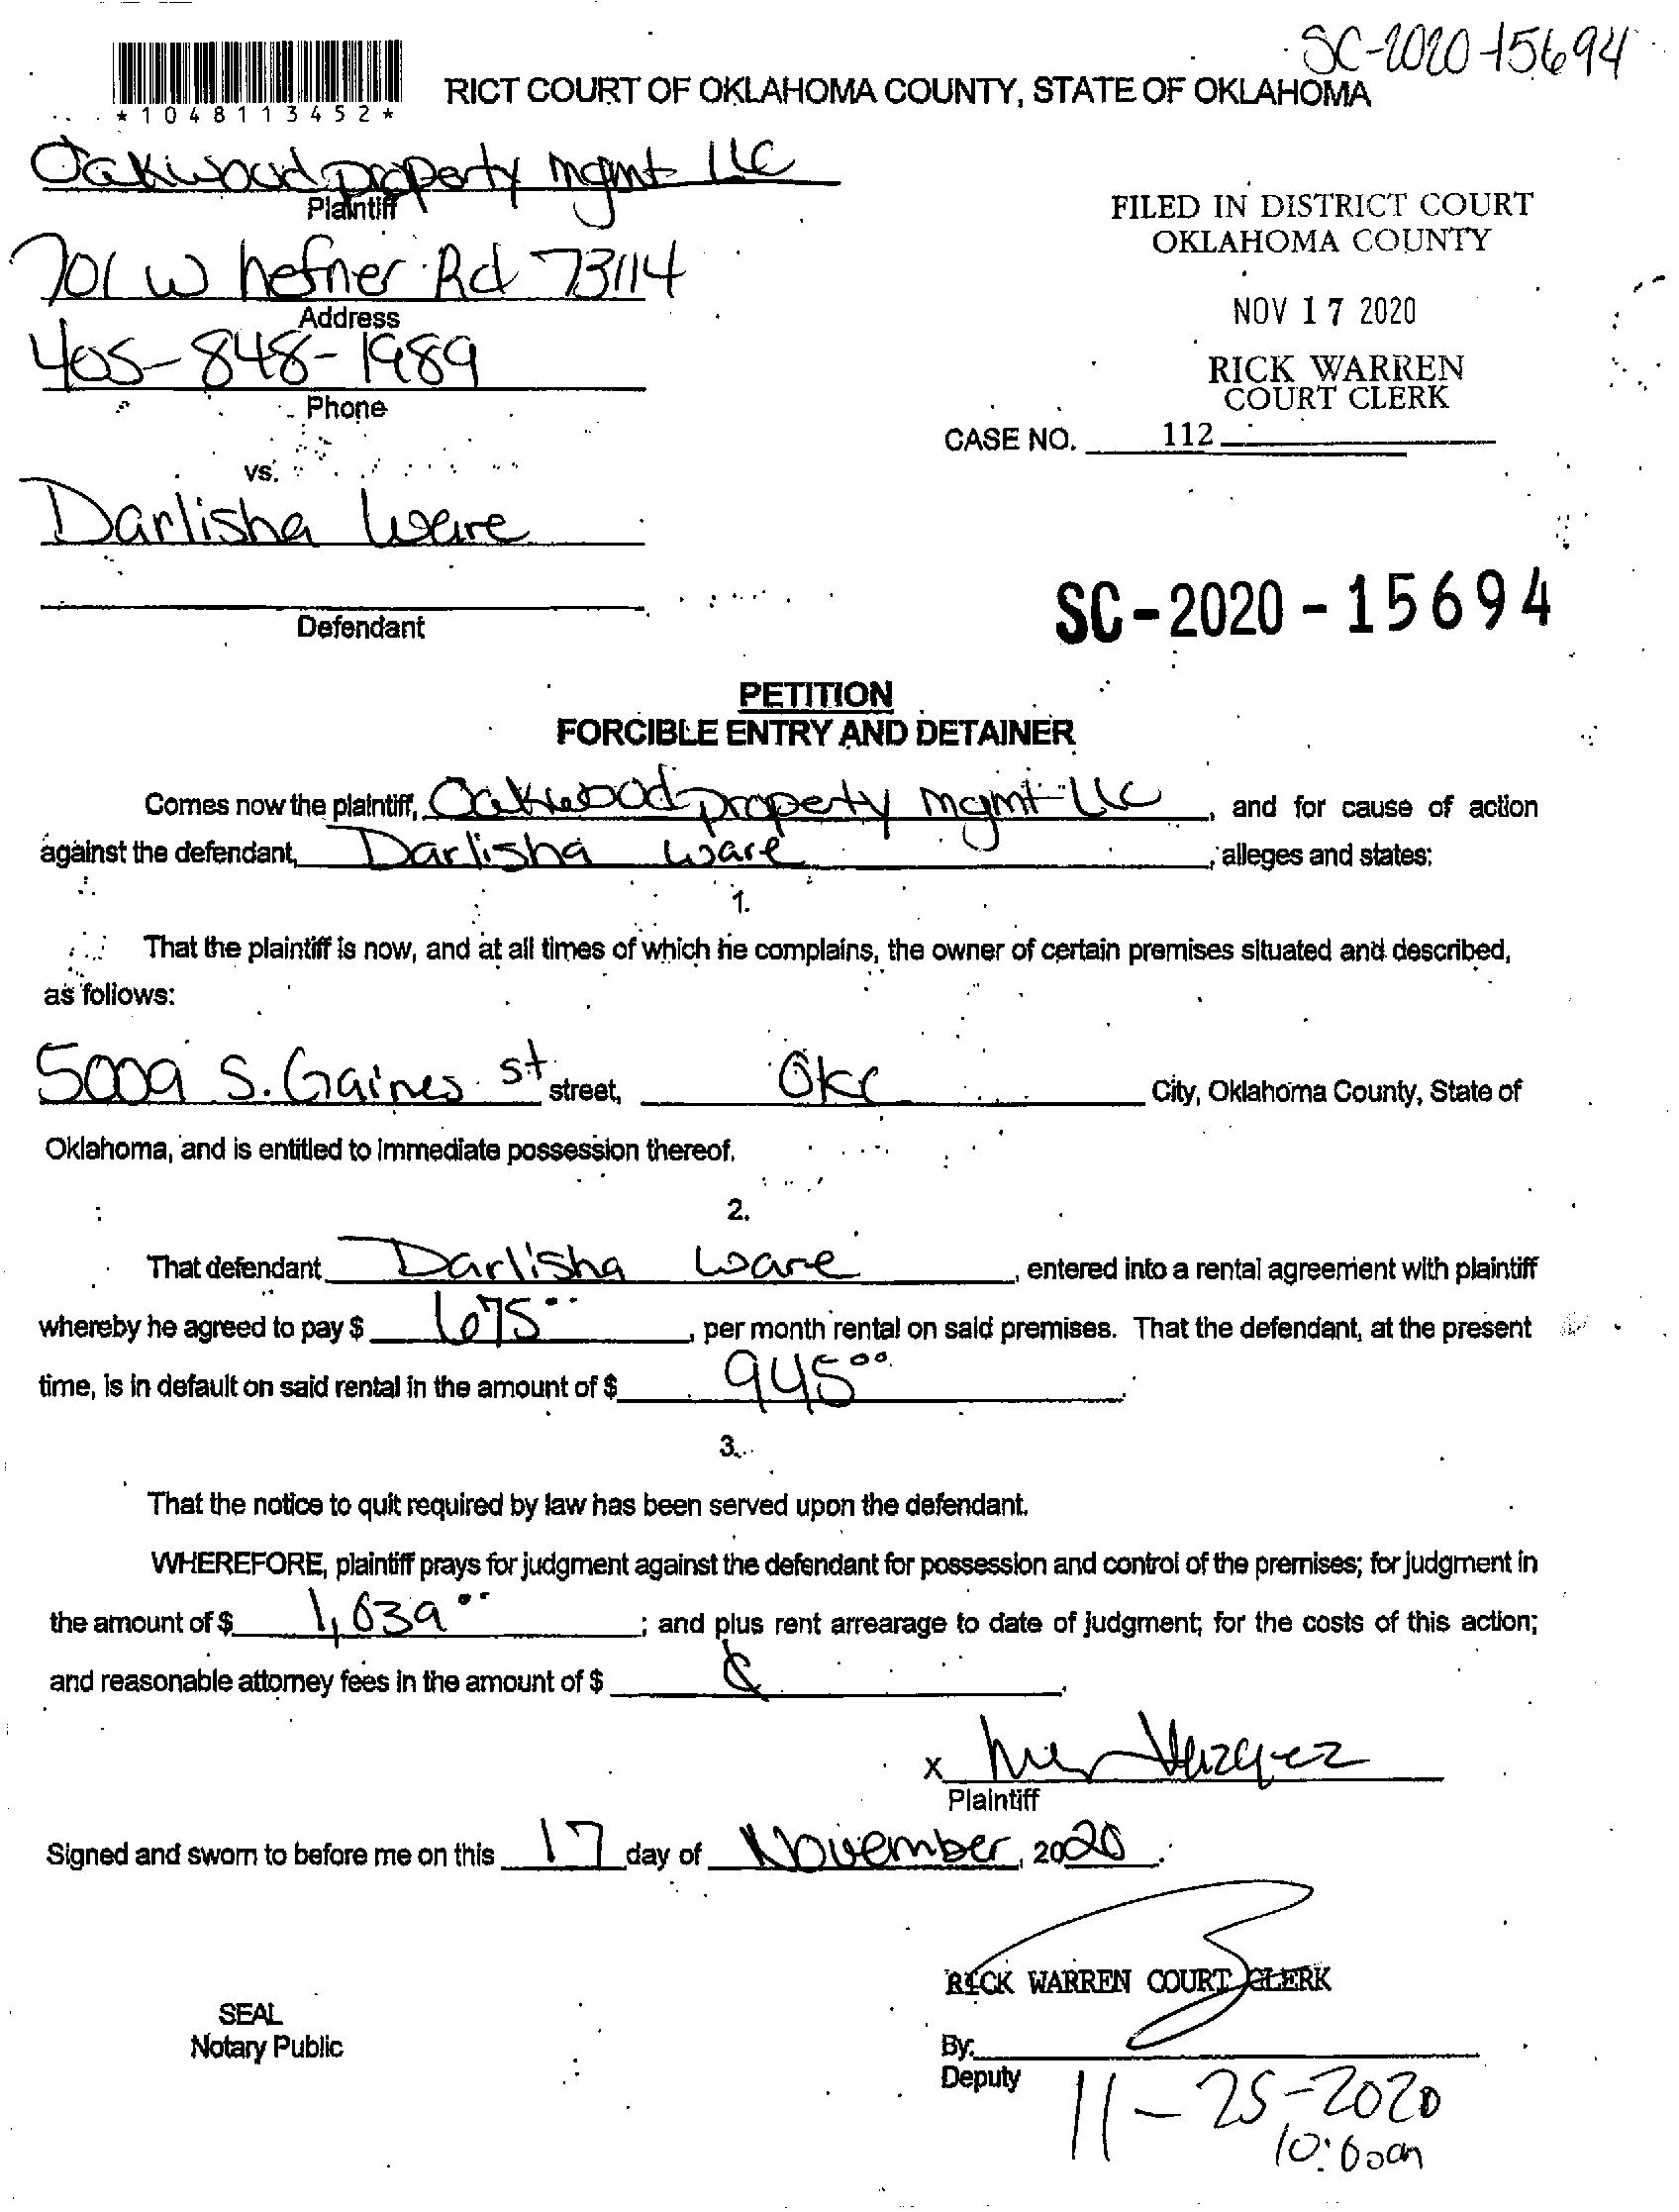 SC-2020-15694
*1048113452*
RICT COURT OF OKLAHOMA COUNTY, STATE OF OKLAHOMA
Oakwood property mgmt LLC
Plaintiff
701 W hefner Rd 73114
Address
405-848-1989
Phone
FILED IN DISTRICT COURT
OKLAHOMA COUNTY
NOV 17 2020
RICK WARREN
COURT CLERK
CASE NO. 112
vs.
Darlisha Ware
Defendant
SC-2020-15694
PETITION
FORCIBLE ENTRY AND DETAINER
Comes now the plaintiff, Oakwood property mgmt LLC, and for cause of action
against the defendant, Darlisha Ware, alleges and states:
1.
That the plaintiff is now, and at all times of which he complains, the owner of certain premises situated and described,
as follows:
5009 S. Gaines st street, Okc City, Oklahoma County, State of
Oklahoma, and is entitled to immediate possession thereof.
2.
That defendant Darlisha Ware, entered into a rental agreement with plaintiff
whereby he agreed to pay $ 675.00, per month rental on said premises. That the defendant, at the present
time, is in default on said rental in the amount of $ 945.00.
3.
That the notice to quit required by law has been served upon the defendant.
WHEREFORE, plaintiff prays for judgment against the defendant for possession and control of the premises; for judgment in
the amount of $ 1,039.00; and plus rent arrearage to date of judgment; for the costs of this action;
and reasonable attorney fees in the amount of $
x Vazquez
Plaintiff
Signed and sworn to before me on this 17 day of November, 2020.
RICK WARREN COURT CLERK
SEAL
Notary Public
By:
Deputy
11-25-2020
10:00am